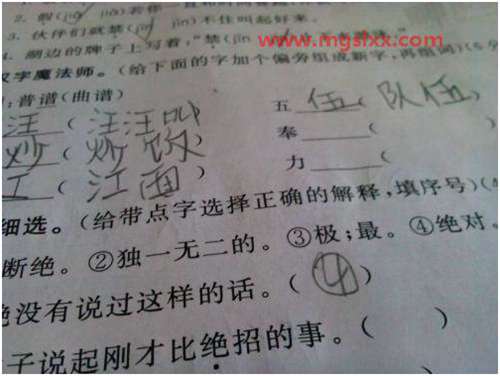 2. 假(jiǎ jià)
3. 伙伴们就禁(jīn jìn)不住叫起好来。
4. 湖边的牌子上写着,"禁(jīn
www.mgslxx.com
汉字魔法师。(给下面的字加个偏旁组成新字,再组词)(6分
:普谱(曲谱)
五 伍( 队伍 )
汪( 汪汪叫
奉 (
炒( 炒饭
力 (
工 ( 江面 )
细选。(给带点字选择正确的解释,填序号)(4
断绝。②独一无二的。③极;最。④绝对。
绝没有说过这样的话。( ④ )
子说起刚才比绝招的事。( )